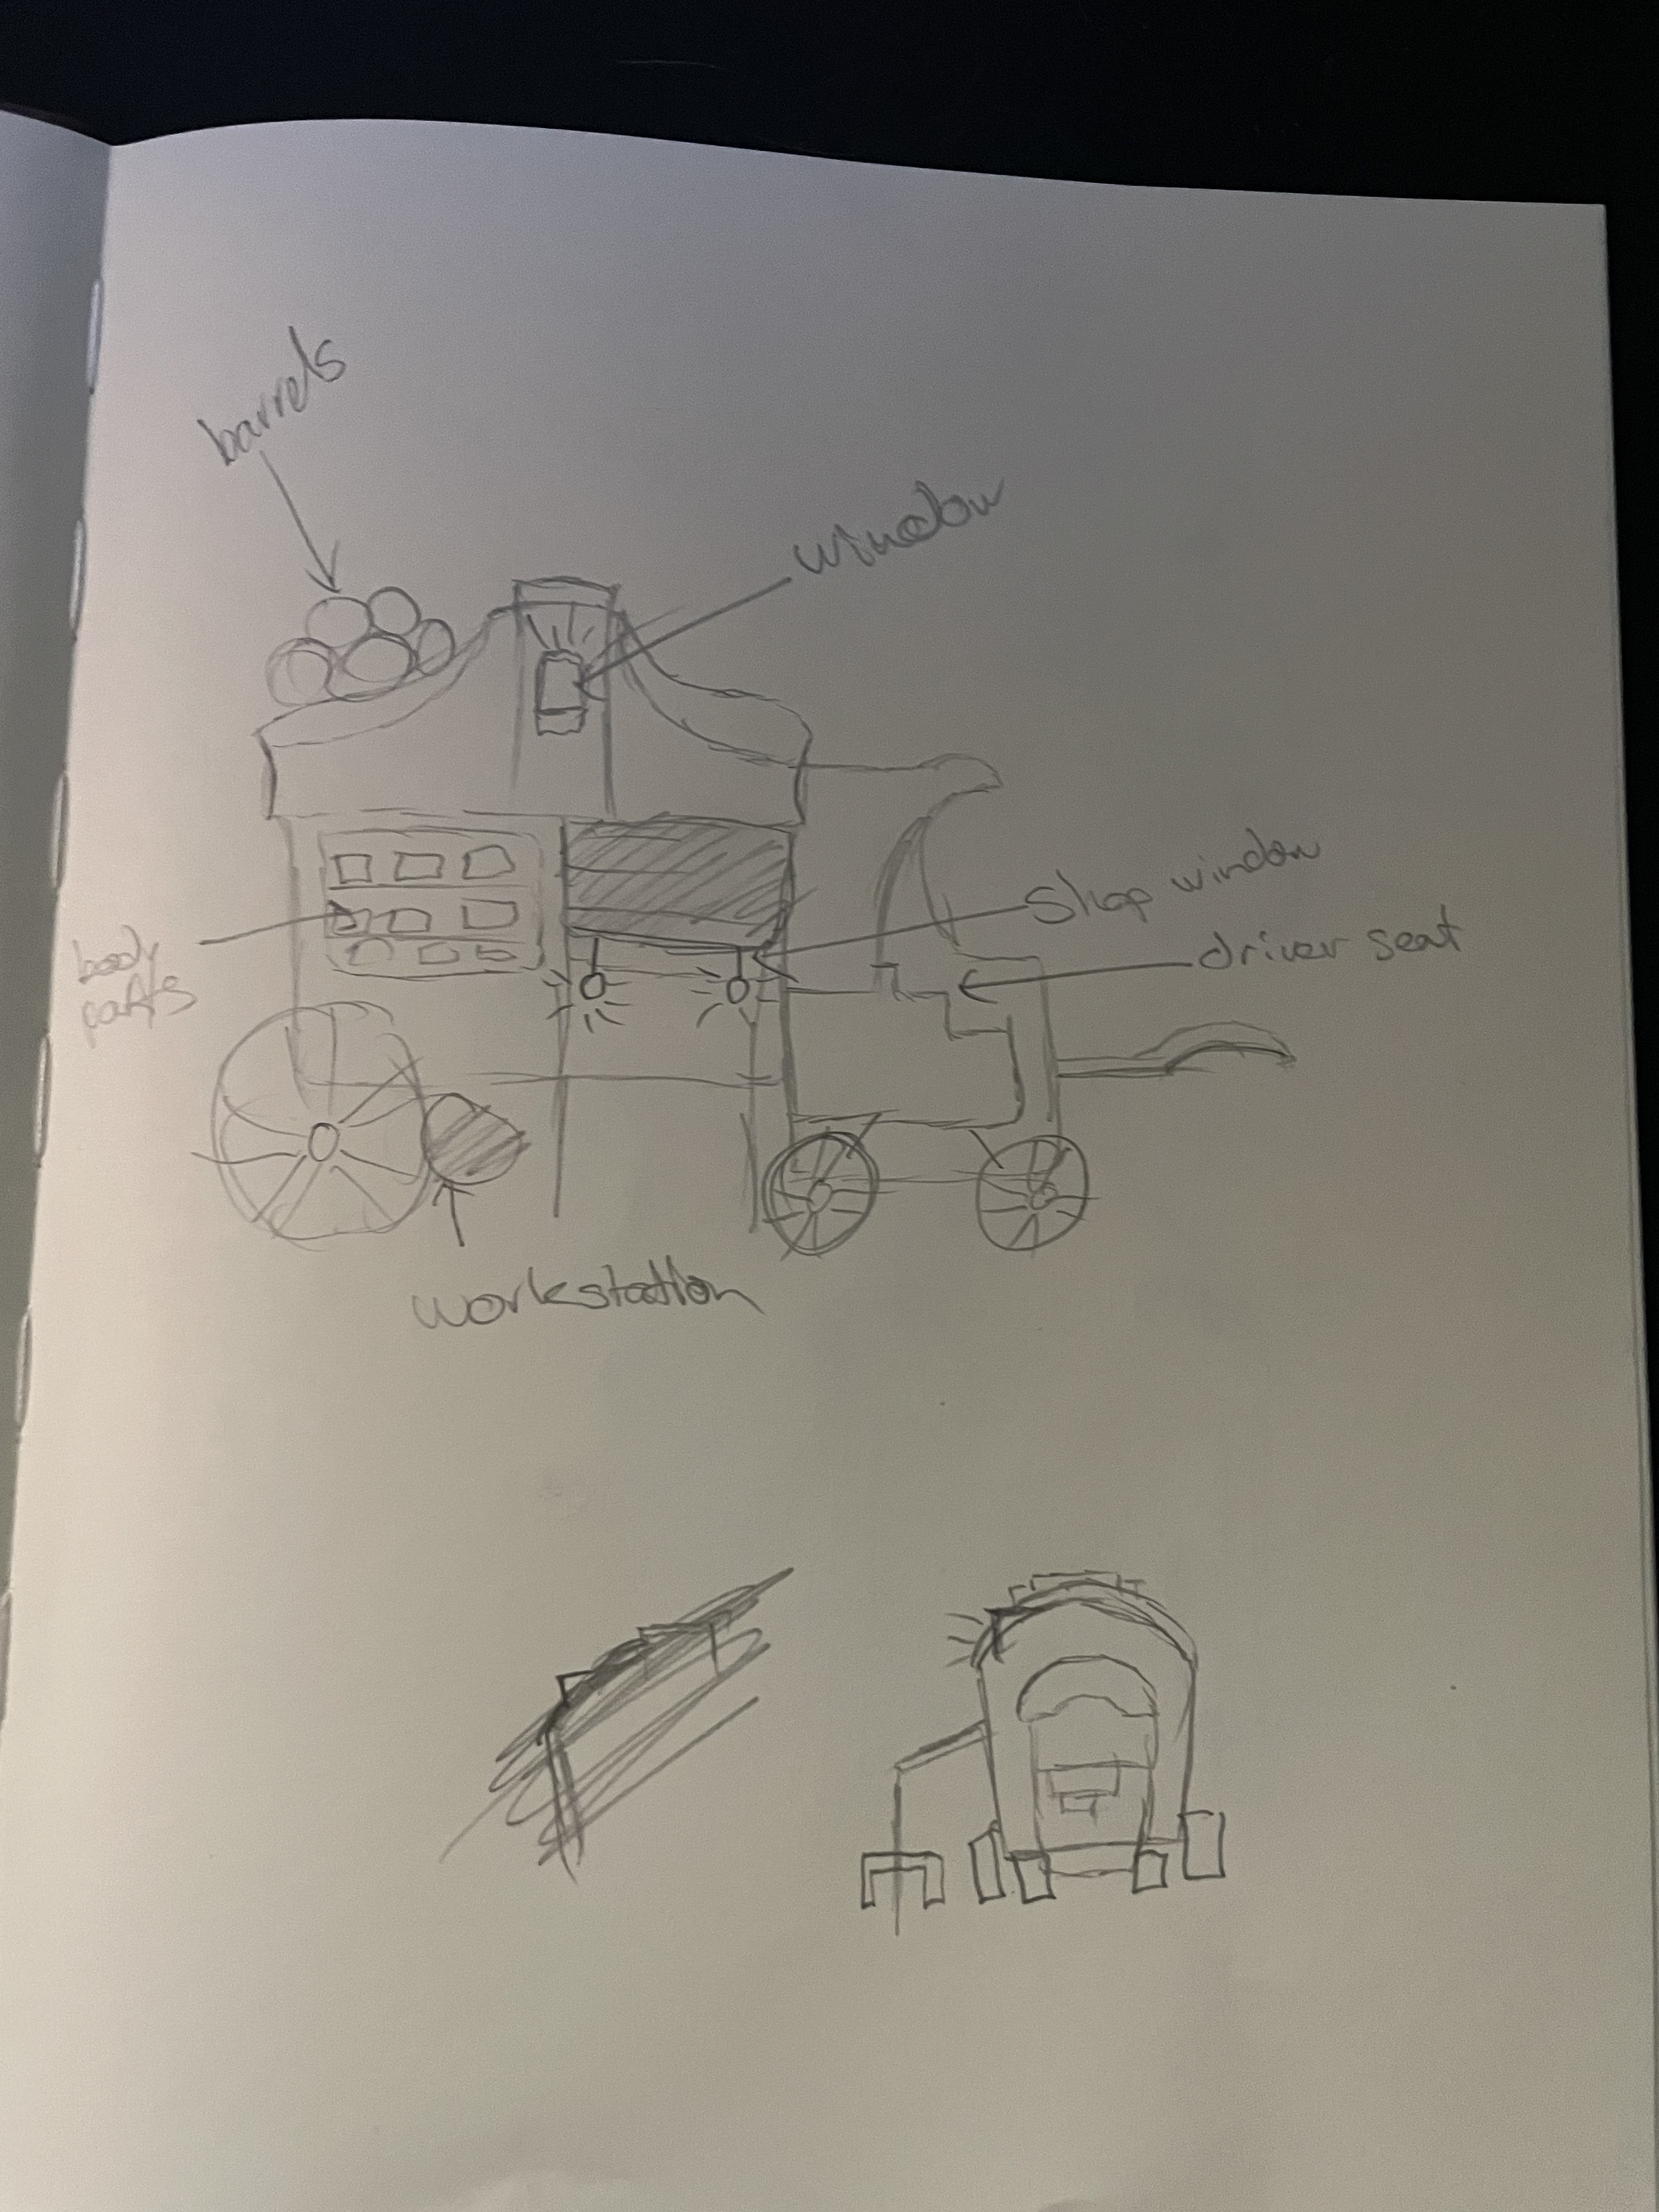 barrels
window
shop window
driver seat
body
parts
workstation